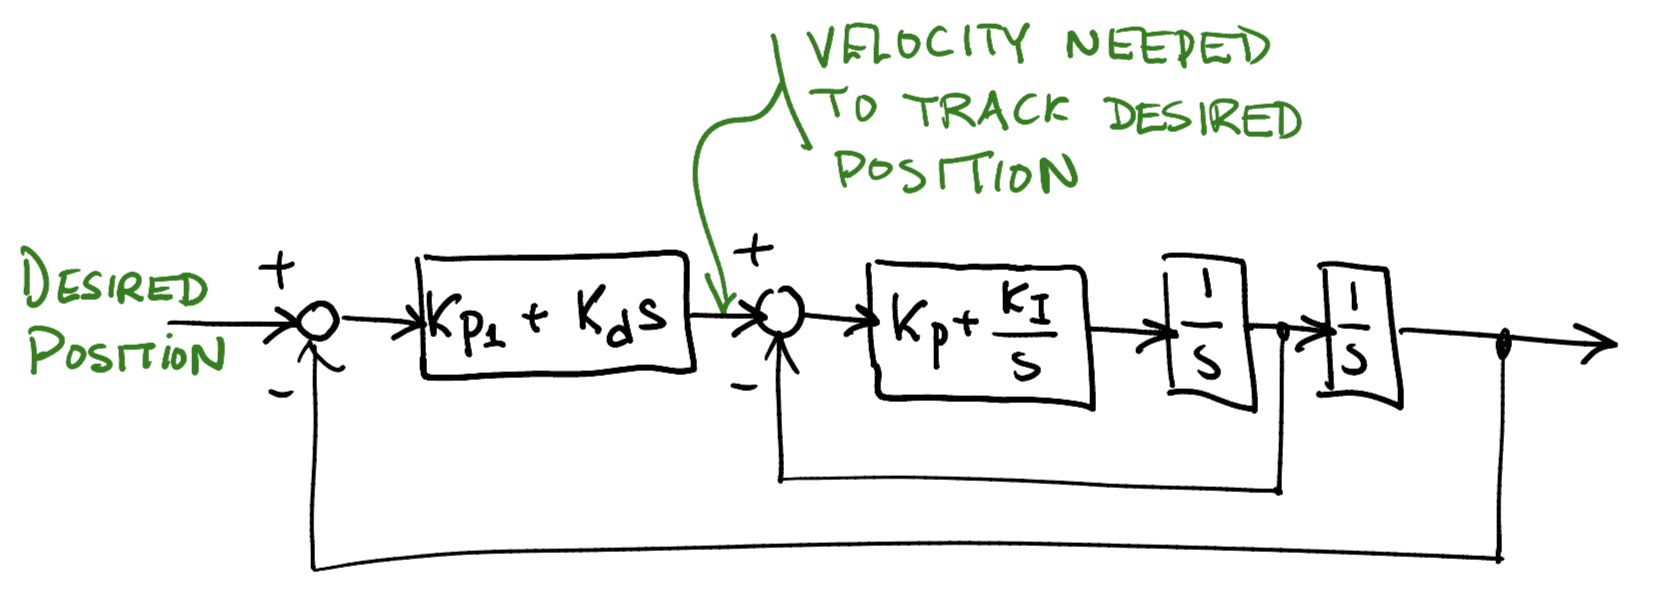 VELOCITY NEEDED
TO TRACK DESIRED
POSITION
DESIRED
POSITION
+
-
Kp1 + Kds
+
-
Kp + KI/s
1/s
1/s